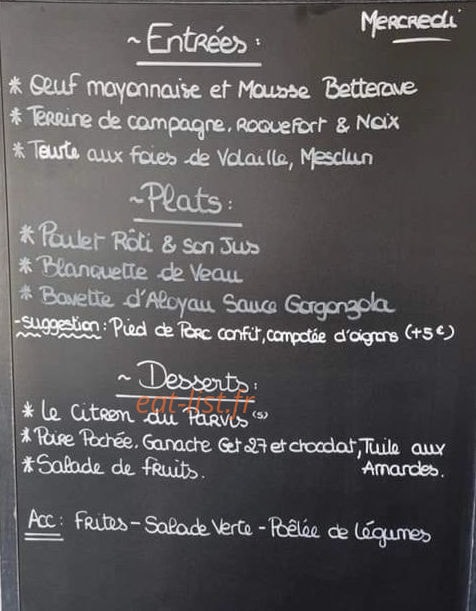 Mercredi
~ Entrées :
* Œuf mayonnaise et Mousse Betterave
* Terrine de campagne, Roquefort & Noix
* Tourte aux foies de Volaille, Mesclun
~ Plats :
* Poulet Rôti & son Jus
* Blanquette de Veau
* Bavette d'Aloyau Sauce Gorgonzola
- Suggestion : Pied de Porc confit, compotée d'oignons (+5€)
~ Desserts :
eat-list.fr
* Le Citron du Parvis (S)
* Poire Pochée, Ganache Get 27 et chocolat, Tuile aux
Amandes.
* Salade de fruits.
Acc : Frites - Salade Verte - Poêlée de légumes